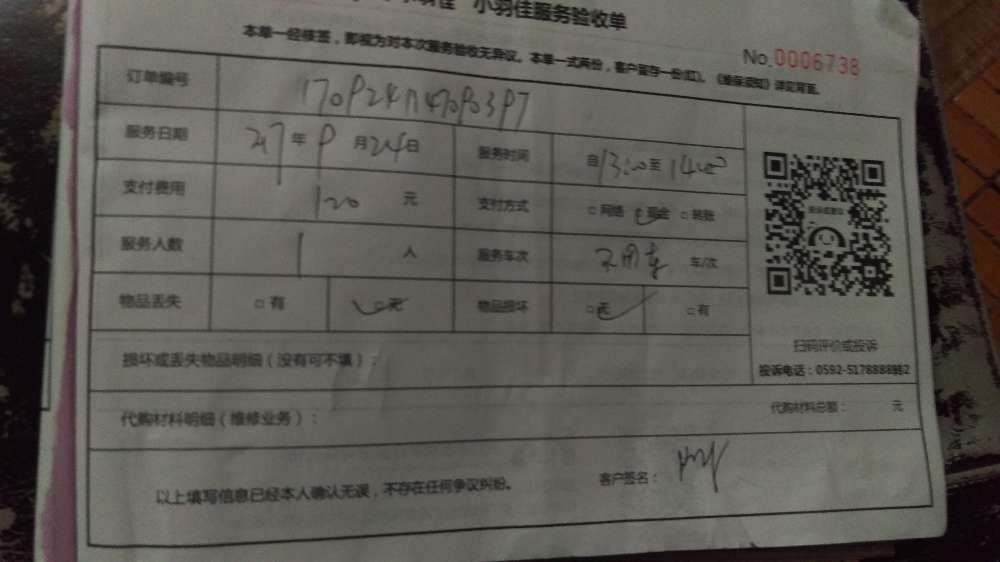 小羽佳服务验收单
本单一经核签，即视为对本次服务验收无异议。本单一式两份，客户留存一份(红)。《维保须知》详见背面。
No.0006738
订单编号
服务日期 年 9 月 24 日 服务时间 自 13:00 至 14:00
支付费用 120 元 支付方式 □网络 □现金 □转账
服务人数 1 人 服务车次 不用车 车/次
物品丢失 □有 □无 物品损坏 □无 □有
扫码评价或投诉
投诉电话：0592-5178888转2
损坏或丢失物品明细（没有可不填）：
代购材料明细（维修业务）： 代购材料总额： 元
以上填写信息已经本人确认无误，不存在任何争议纠纷。 客户签名：